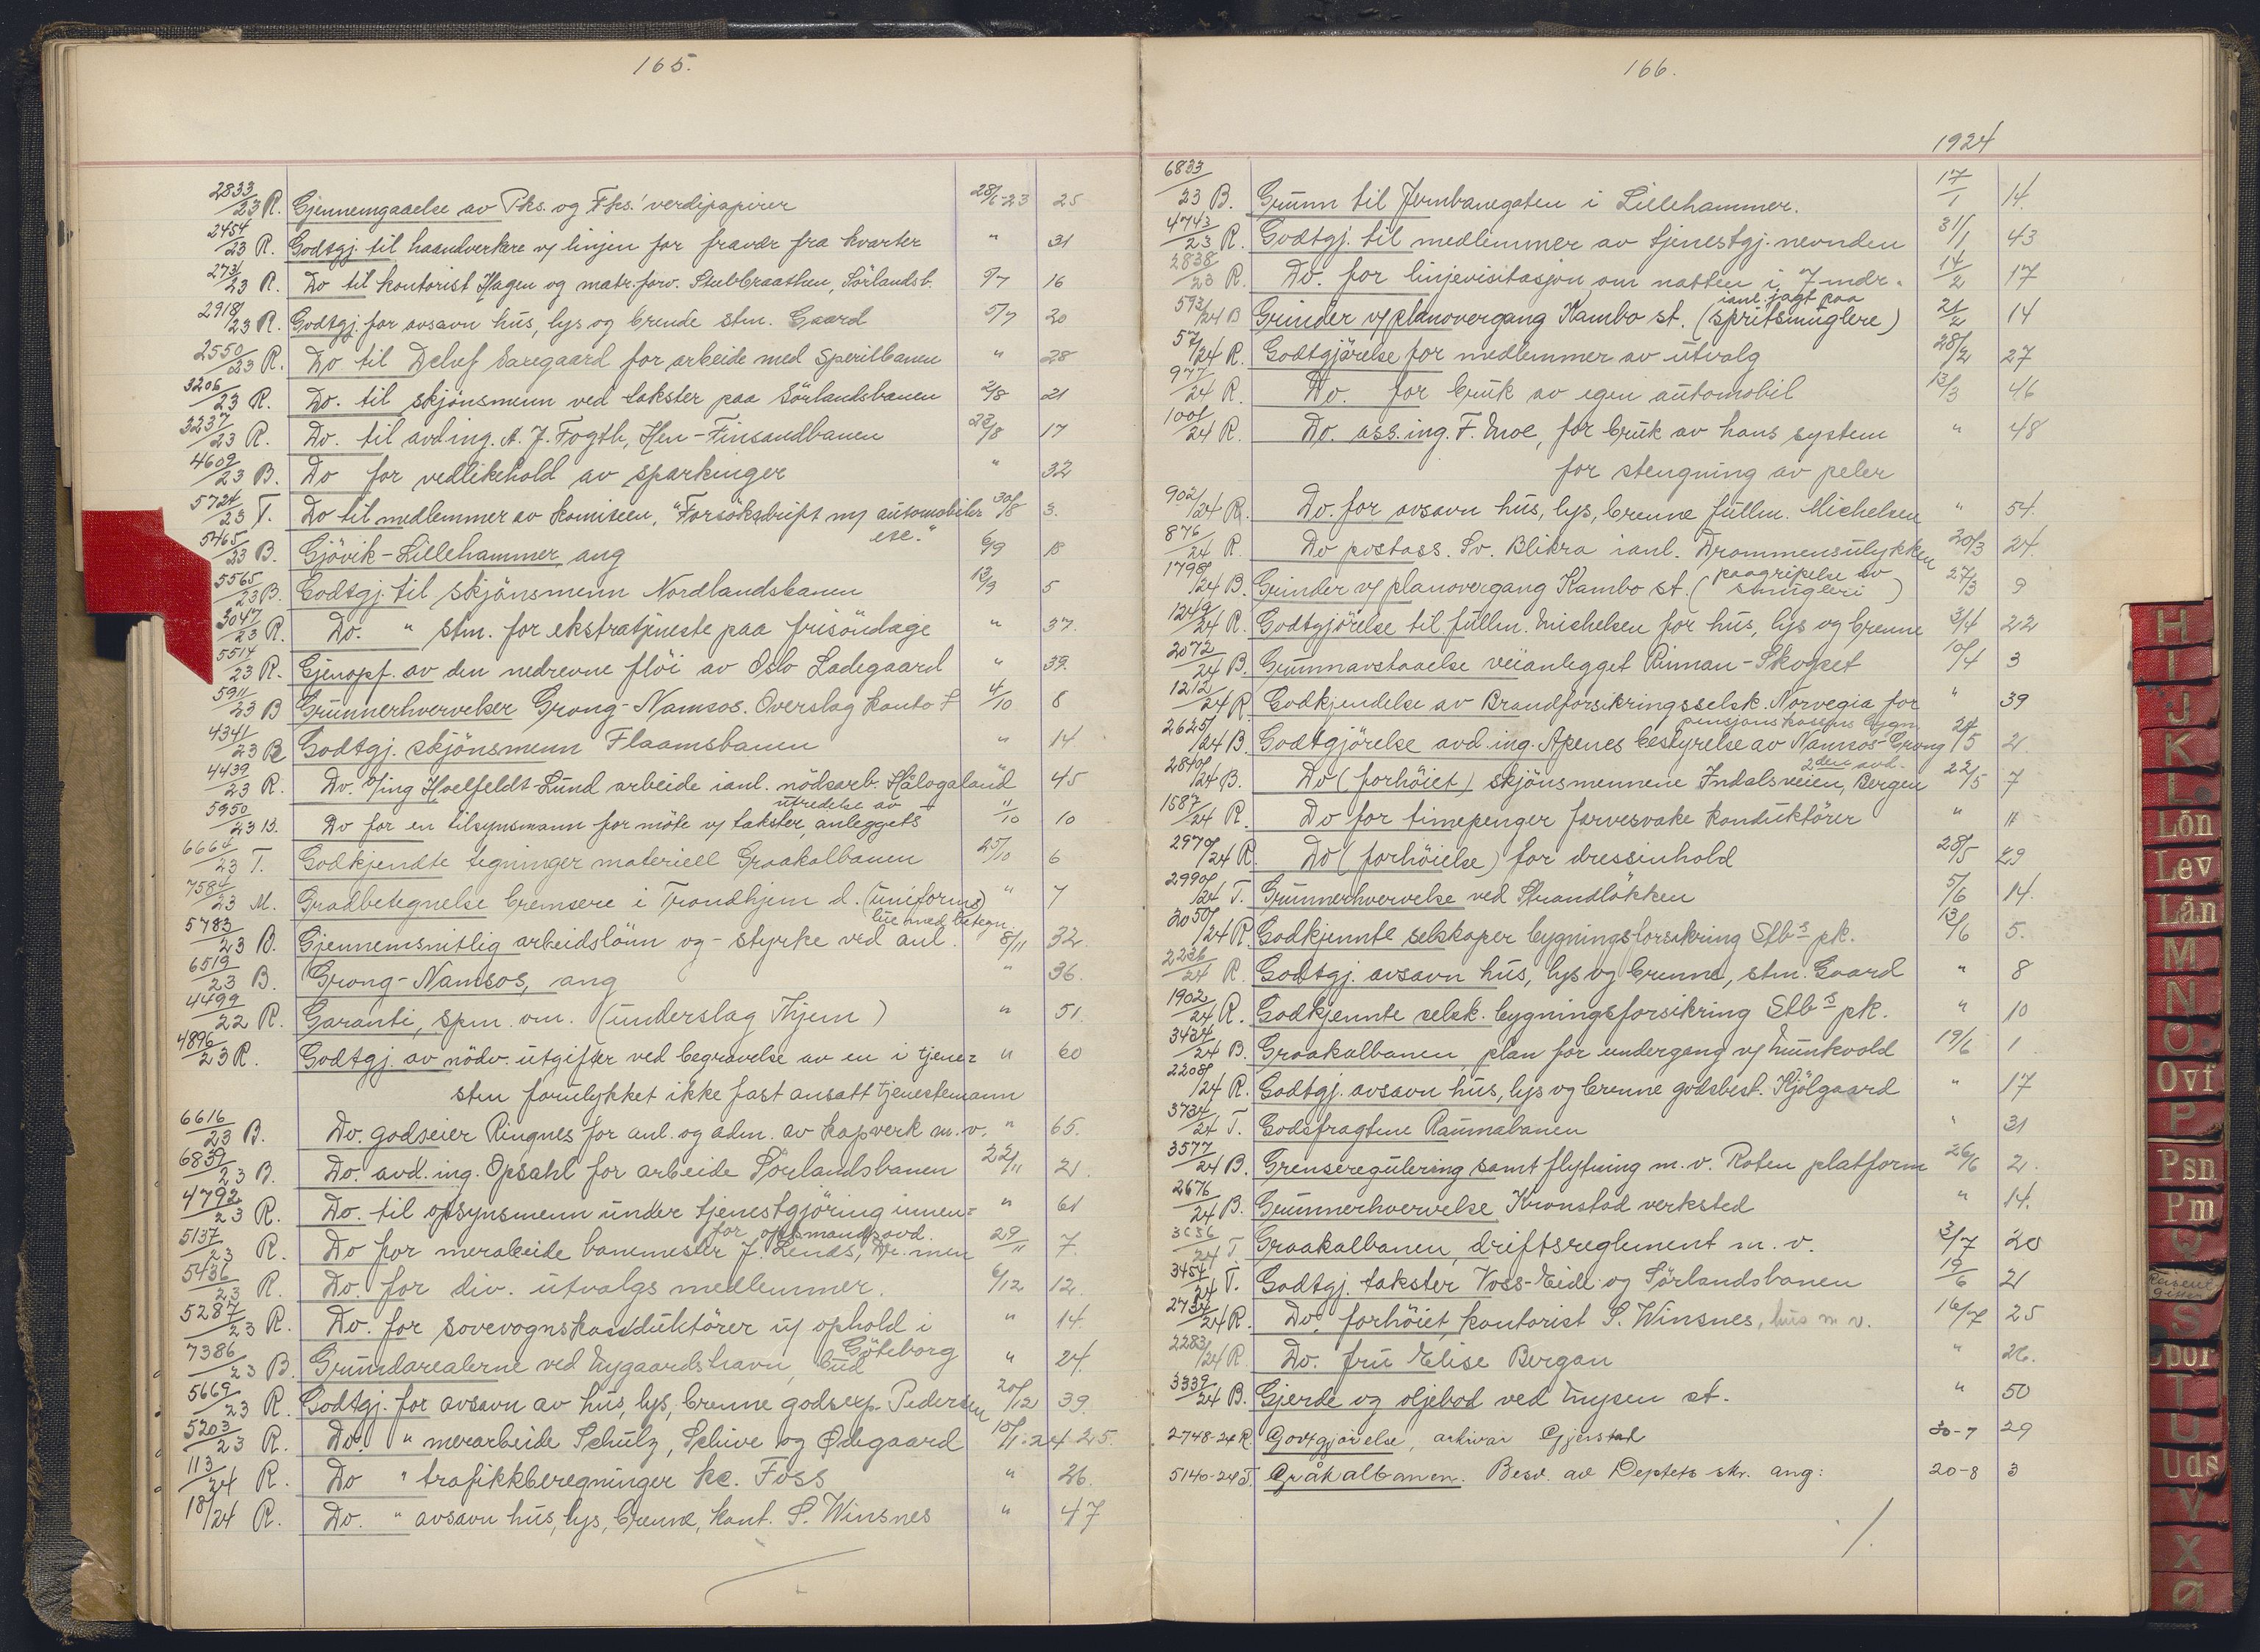 165.
2833/23 R. Gjennemgaaelse av Pks. og Fks.' verdipapirer 28/6-23 25
2454/23 R. Godtgj. til haandverkere v/ linjen for fravær fra kvarter " 31
2731/23 R. Do til kontorist Hagen og matr. forv. Stubberaathen, Sörlandsb. 5/7 16
2918/23 R. Godtgj. for avsavn hus, lys og brende stm. Gaard 5/7 20
2550/23 R. Do til Detlef Saxegaard for arbeide med Sperilbanen " 28
3206/23 R. Do. til skjönsmenn ved takster paa Sörlandsbanen 2/8 21
3237/23 R. Do. til avd.ing. A. J. Fogth, Hen-Finsandbanen 23/8 17
4609/23 B. Do for vedlikehold av sparkinger " 32
5724/23 T. Do til medlemmer av komiteen, "Forsöksdrift m/ automobiler 30/8 3.
etc."
5465/23 B. Gjövik-Lillehammer ang 6/9 18
5565/23 B. Godtgj. til skjönsmenn Nordlandsbanen 13/9 5
3047/23 R. Do. " stm. for ekstratjeneste paa frisöndage " 37.
5514/23 R. Gjenopf. av den nedrevne flöi av Oslo Ladegaard " 39.
5911/23 B Grunnerhvervelser Grong-Namsos. Overslag konto f 4/10 8
4341/23 R Godtgj. skjönsmenn Flaamsbanen " 14
4439/23 R. Do. v/ing Hoelfeldt-Lund arbeide ianl. nödsarb. Hålogaland 45
utredelse av
5950/23 B. Do for en tilsynsmann for möte v/ takster, anleggets 11/10 10
6664/23 T. Godkjendte tegninger materiell Graakalbanen 25/10 6
7584/23 M. Gradbetegnelse bremsere i Trondhjem d. (uniforms) " 7
lue med betegn.
5783/23 B. Gjennemsnitlig arbeidslönn og - styrke ved anl. 8/11 32
6519/23 B. Grong-Namsos, ang " 36.
4499/22 R. Garanti, spm. om. (underslag Thjem) " 51.
4896/23 R. Godtgj. av nödv. utgifter ved begravelse av en i tjene= " 60
sten forulykket ikke fast ansatt tjenestemann
6616/23 B. Do. godseier Ringnes for anl. og adm. av kapverk m.v. " 65.
6839/23 B. Do. avd. ing. Opsahl for arbeide Sörlandsbanen 22/11 21.
4792/23 R. Do. til opsynsmenn under tjenestgjöring innen= " 61
for opsmandsavd.
5137/23 R. Do for merabeide banemester J. Lends, Dr. men 29/11 7.
5436/23 R. Do. for div. utvalgs medlemmer. 6/12 12.
5287/23 R. Do. for sovevognskonduktörer v/ ophold i " 14.
Göteborg
7386/23 B. Grundarealerne ved Nygaardshavn, bud " 24.
5669/23 R. Godtgj. for avsavn av hus, lys, brenne godsexp. Pedersen 20/12 39.
5203/23 R. Do. " merarbeide Schulz, Schive og Ødegaard 10/1-24 25.
113/24 R. Do " trafikkberegninger kc. Foss " 26.
18/24 R. Do. " avsavn hus, lys, brenne, kont. S. Winsnes " 47
166.
1924
6833/23 B. Grunn til Jernbanegaten i Lillehammer. 17/1 14.
4743/23 R. Godtgj. til medlemmer av tjenestgj. nevnden 31/1 43
2838/23 R. Do. for linjevisitasjon om natten i 7 mdr. 14/2 17
ianl. jagt paa
593/24 B Grinder v/ planovergang Kambo st. (spritsmuglere) 21/2 14
57/24 R. Godtgjörelse for medlemmer av utvalg 28/2 27
977/24 R. Do. for bruk av egen automobil 13/3 46
1001/24 R. Do. ass. ing. F. Moe, for bruk av hans system " 48
for stengning av peler
902/24 R. Do. for avsavn hus, lys, brenne fullm. Michelsen " 54.
876/24 R. Do postass. Sv. Blikra ianl. Drammensulykken 20/3 24.
1798/24 B. Grinder v/ planovergang Kambo st. (paagripelse av smugleri) 27/3 9
1249/24 R. Godtgjörelse til fullm. Michelsen for hus, lys og brenne 3/4 22
2072/24 B. Grunnavstaaelse veianlegget Rinnan-Skogset 10/4 3
1212/24 R Godkjendelse av Brandforsikringsselsk. Norvegia for " 39
pensjonskassens bygn.
2625/24 B. Godtgjörelse avd. ing. Apenes bestyrelse av Namsos-Grong 24/5 21.
2den avd.
2840/24 B. Do (forhöiet) skjönsmennene Indalsveien, Bergen 22/5 7
1587/24 R. Do for timepenger farvesvake konduktörer " 11
2970/24 R. Do (forhöielse) for dressinhold 28/5 29
2990/24 T. Grunnerhvervelse ved Strandlökken 5/6 14.
3050/24 R Godkjennte selskaper bygningsforsikring Stbs pk. 13/6 5.
2236/24 R. Godtgj. avsavn hus, lys og brenne, stm. Gaard " 8
1902/24 R. Godkjennte selsk. bygningsforsikring Stbs pk. " 10
3434/24 B. Graakalbanen plan for undergang v/ Munkvold 19/6 1
2208/24 R. Godtgj. avsavn hus, lys og brenne godsbest. Kjölgaard " 17
3734/24 T. Godsfragtene Raumabanen " 31
3577/24 B. Grenseregulering samt flytning m. v. Roten platform 26/6 2.
2676/24 B. Grunnerhvervelse Kronstad verksted " 14.
3656/24 T. Graakalbanen driftsreglement m. v. 3/7 20
3454/24 T. Godtgj. takster Voss-Eide og Sörlandsbanen 19/6 21
2734/24 R. Do. forhöiet, kontorist S. Winsnes, hus m v. 16/7 25
2283/24 R. Do. fru Elise Bergan " 26.
3339/24 B. Gjerde og oljebod ved Mysen st. " 50
2748-24 R. Godtgjörelse, arkivar Gjerstad 30-7 29
5140-24 T. Gråkalbanen. Besv. av Deptets skr. ang: 20-8 3
H
I
J
K
L
Lön
Lev
Lån
M
N
O
Ovf
P
Psn
Pm
Q
S
Spor
T
U
Uds
V
X
Ø